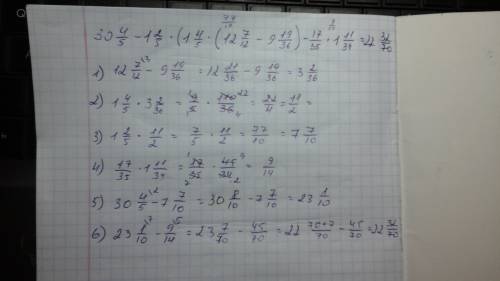 77/10 9/14
30 4/5 - 1 2/5 · (1 4/5 · (12 7/12 - 9 19/36) - 17/35 · 1 11/34 = 22 32/70
1) 12 7/12 - 9 19/36 = 12 21/36 - 9 19/36 = 3 2/36
2) 1 4/5 · 3 2/36 = 9/5 · 110/36 = 22/4 = 11/2 =
3) 1 2/5 · 11/2 = 7/5 · 11/2 = 77/10 = 7 7/10
4) 17/35 · 1 11/34 = 17/35 · 45/34 = 9/14
5) 30 4/5 - 7 7/10 = 30 8/10 - 7 7/10 = 23 1/10
6) 23 1/10 - 9/14 = 23 7/70 - 45/70 = 22 70+7/70 - 45/70 = 22 32/70